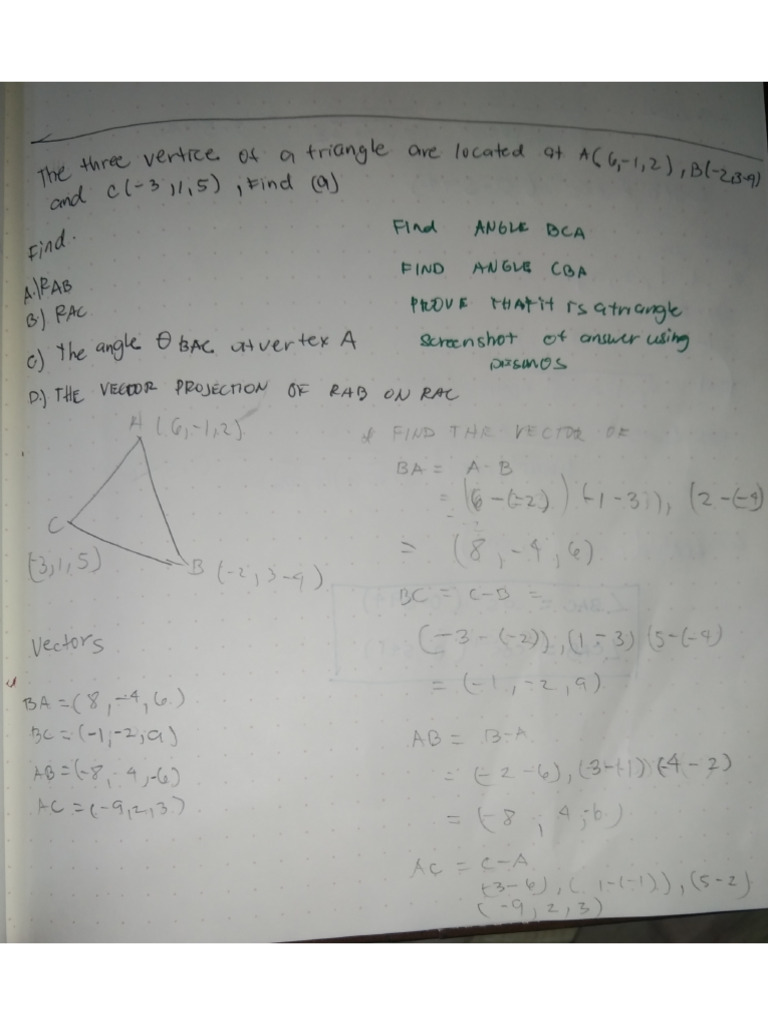 The three vertice of a triangle are located at A(6,-1,2), B(-2,3-4)
and C(-3,1,5), Find (a)
Find.
A.) RAB
B) RAC
C) The angle θ BAC at vertex A
D.) THE VECTOR PROJECTION OF RAB ON RAC
Find ANGLE BCA
FIND ANGLE CBA
PROVE THAT it is a triangle
screenshot of answer using
DESMOS
A (6,-1,2)
C
(-3,1,5)
B (-2, 3-4)
Vectors
BA = (8, -4, 6)
BC = (-1,-2,9)
AB = (-8, 4,-6)
AC = (-9,2,3)
FIND THE VECTOR OF
BA = A-B
= (6-(-2)) (-1-3)), (2-(-4)
= (8, -4, 6)
BC = C-B =
(-3-(-2)), (1-3) (5-(-4)
= (-1, -2, 9)
AB = B-A
= (-2-6), (3-(-1)) (-4-2)
= (-8, 4,-6)
AC = C-A
(-3-6), (1-(-1)), (5-2)
(-9, 2, 3)